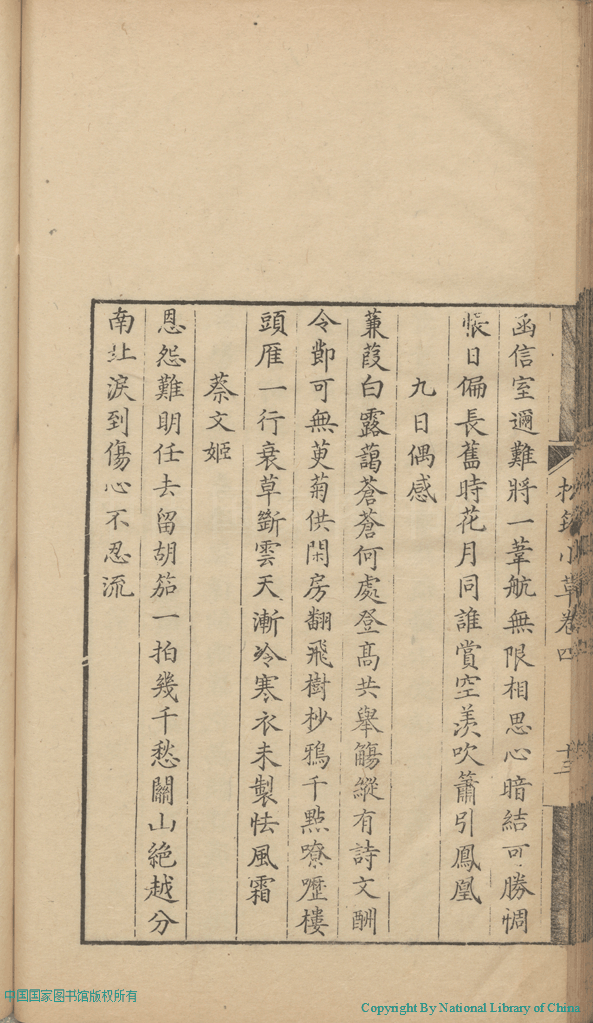 函信室邇難將一葦航無限相思心暗結可勝惆
悵日偏長舊時花月同誰賞空羨吹簫引鳳凰
九日偶感
蒹葭白露藹蒼蒼何處登高共舉觴縱有詩文酬
令節可無萸菊供閑房翻飛樹杪鴉千點嘹嚦樓
頭雁一行衰草斷雲天漸冷寒衣未製怯風霜
蔡文姬
恩怨難明任去留胡笳一拍幾千愁關山絕越分
南北淚到傷心不忍流
小草卷四
十三
中国国家图书馆版权所有
Copyright By National Library of China